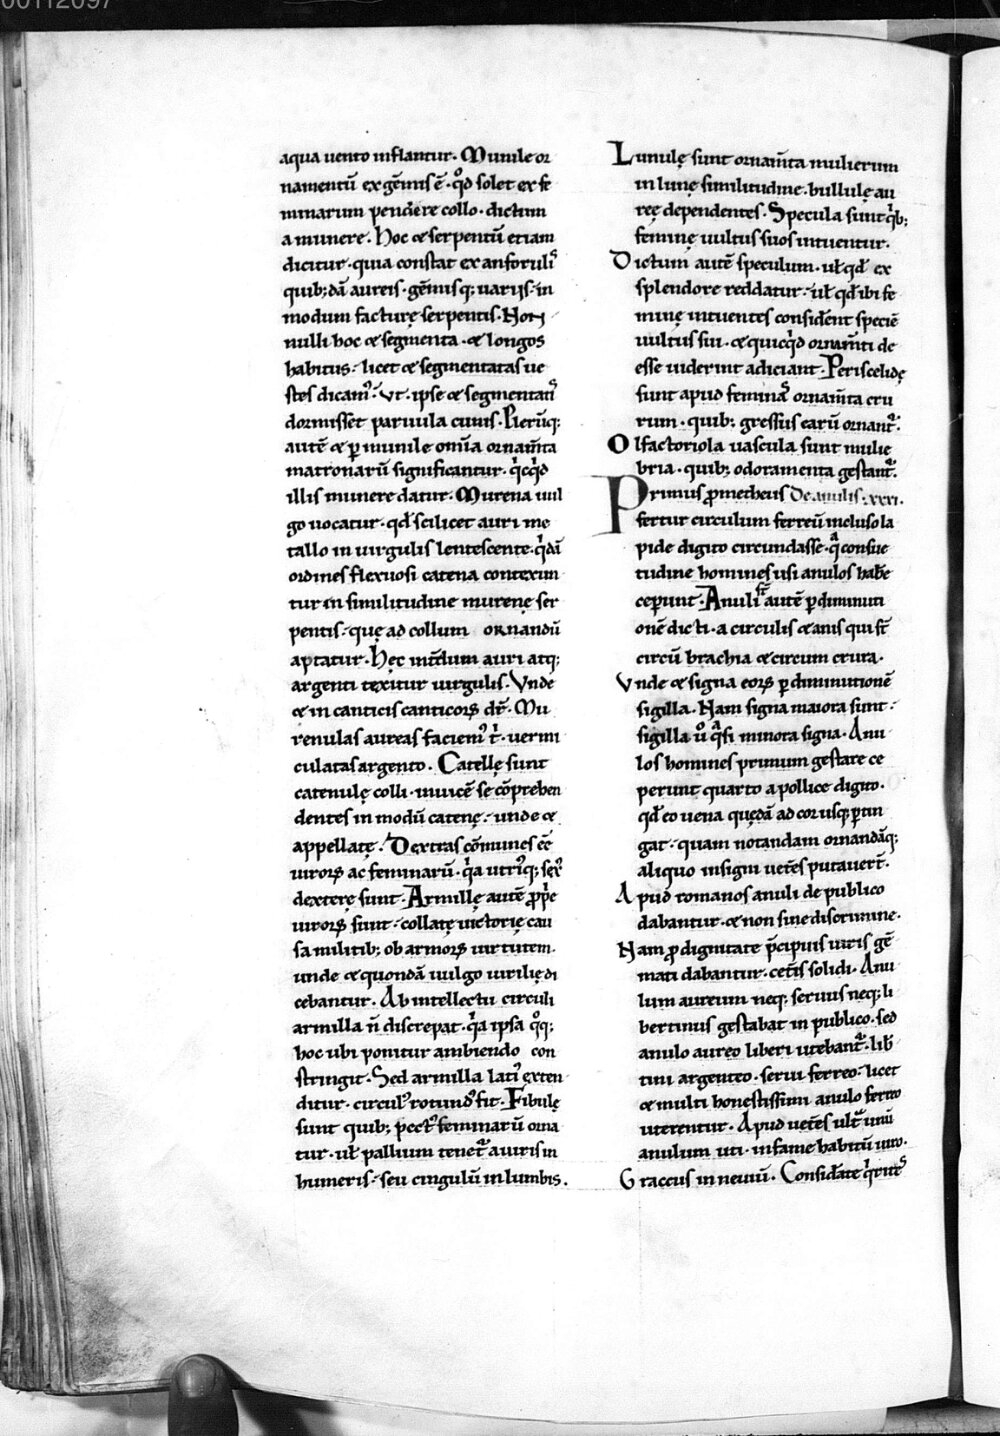 00112097
aqua uento inflantur. Munile or
namentū ex gēmis ē. qđ solet ex fe
minarum pendere collo. dictum
a munere. Hoc & serpentū etiam
dicitur. quia constat ex anforuliˢ
quib; dā aureis. gēmisq; uarijs. in
modum facturę serpentis. Non
nulli hoc & segmenta. & longos
habitus. licet & segmentatas ue
stes dicam᾿. Vt. ipse & segmentatiˢ
dormisset paruula cunis. Plerūq;
autē & p munile omīa ornam̄ta
matronarū significantur. qͥcqͥd
illis munere datur. Murena uul
go uocatur. qđ scilicet auri me
tallo in uirgulis lentescente. qͥdā
ordines flexuosi catena contexun
tur in similitudine murenę ser
pentis. quę ad collum ornandū
aptatur. Hęc int̄dum auri atq;
argenti texitur uirgulis. Vnde
& in canticis canticoꝝ dr̄. Mu
renulas aureas faciem᾿ tͥ. uermi
culatas argento. Catellę sunt
catenulę colli. inuicē se cōprehen
dentes in modū catenę. unde &
appellatę. Dextras cōmunes eē
uiroꝝ ac feminarū. qͥa utriˀq; sex᾿
dexterę sunt. Armillę autē ꝓpͥe
uiroꝝ sunt. collatę uictorię cau
sa militib; ob armoꝝ uirtutem.
unde & quondā uulgo uirilię di
cebantur. Ab intellectu circuli
armilla n̄ discrepat. qͥa ipsa qͦq;
hoc ubi ponitur ambiendo con
stringit. Sed armilla lati᾿ exten
ditur. circul᾿ rotund᾿ fit. Fibulę
sunt quib; pect᾿ feminarū orna
tur. ul̄ pallium tenetᷓ a uiris in
humeris. seu cingulū in lumbis.
Lunulę sunt ornam̄ta mulierum
in lunę similitudine. bullulę au
reę dependentes. Specula sunt qͥb;
feminę uultus suos intuentur.
Dictum autē speculum. ul̄ qđ ex
splendore reddatur. ul̄ qđ ibi fe
minę intuentes consid̄ent speciē
uultus sui. & quicqͥd ornam̄ti de
esse uiderint adiciant. Periscelidę
sunt apud feminaˢ ornam̄ta cru
rum. quib; gressus earū ornantᷓ.
Olfactoriola uascula sunt mulie
bria. quib; odoramenta gestantᷓ.
Primus ꝓmetheus De anulis. xxxi.
fertur circulum ferreū incluso la
pide digito circundasse. qͣ consue
tudine homines usi anulos habe
ceperunt. Anuli autē p diminuti
onē dicti. a circulis & anis qui st̄
circū brachia & circum crura.
Vnde & signa eoꝝ p diminutionē
sigilla. Nam signa maiora sunt.
sigilla ūͦ qͣsi minora signa. Anu
los homines primum gestare ce
perunt quarto a pollice digito.
qđ eo uena quędā ad cor usq; ptin
gat. quam notandam ornandāq;
aliquo insigni uet̄es putauer̄t.
Apud romanos anuli de publico
dabantur. & non sine discrimine.
Nam ꝓ dignitate p̄cipuis uiris gē
mati dabantur. cet̄is solidi. Anu
lum aureum neq; seruus neq; li
bertinus gestabat in publico. sed
anulo aureo liberi utebantᷓ. lib̄
tini argenteo. serui ferreo. licet
& multi honestissimi anulo ferreo
uterentur. Apud uet̄es ultᷓ unū
anulum uti. infame habitū uiro.
Graccus in neuiū. Consid̄ate qͥritˢ